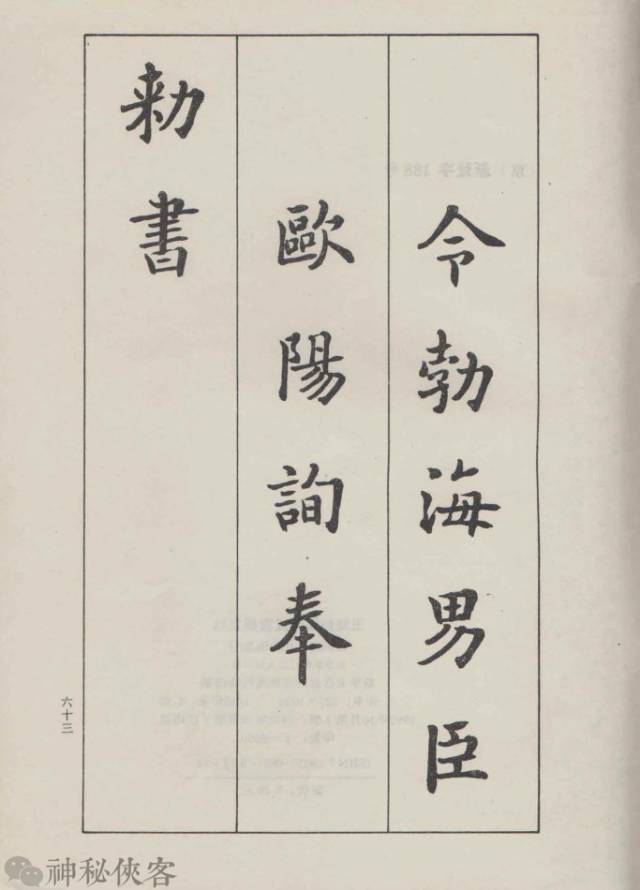 令勃海男臣
歐陽詢奉
勑書
六十三
神秘俠客